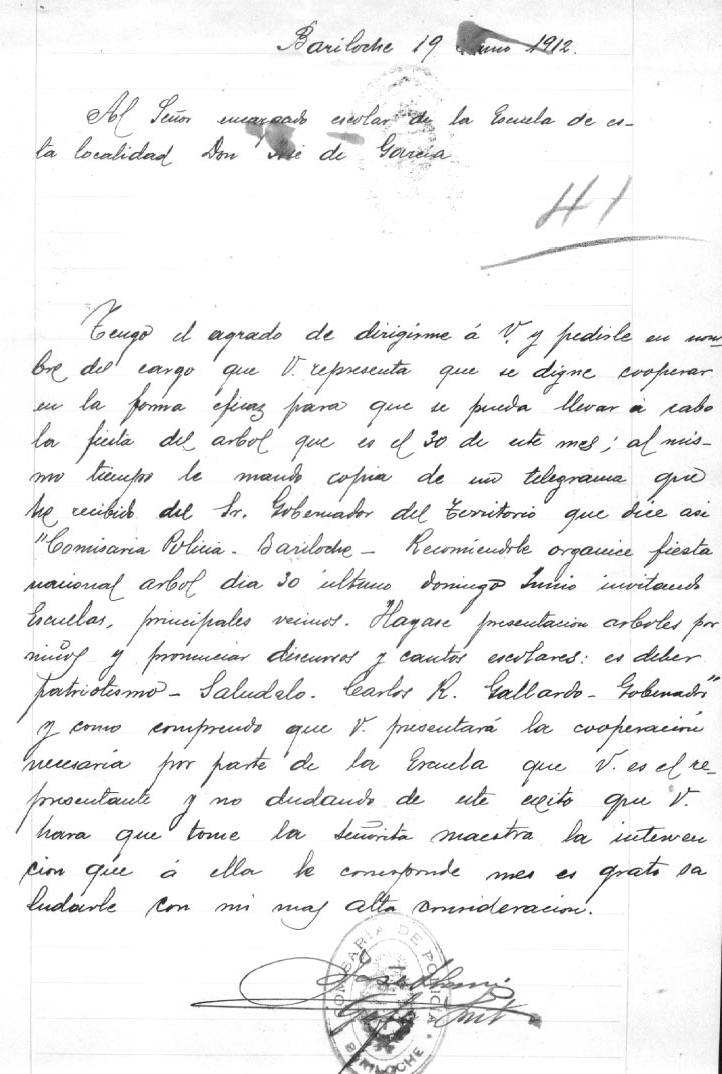 Bariloche 19 1912.
Al Señor encargado escolar de la Escuela de es-
ta localidad Don de Garcia
41
Tengo el agrado de dirigirme á V. y pedirle en nom
bre del cargo que V. representa que se digne cooperar
en la forma eficaz para que se pueda llevar á cabo
la fiesta del arbol que es el 30 de este mes; al mis-
mo tiempo le mando copia de un telegrama que
he recibido del Sr. Gobernador del Territorio que dice asi
"Comisaria Policia - Bariloche - Recomiendole organice fiesta
nacional arbol dia 30 ultimo domingo Junio invitando
Escuelas, principales vecinos. Hagase presentacion arboles por
niños y pronunciar discursos y cantos escolares: es deber
patriotismo - Saludalo. Carlos R. Gallardo - Gobernador"
y como comprendo que V. presentará la cooperación
necesaria por parte de la Escuela que V. es el re-
presentante y no dudando de este exito que V.
hara que tome la señorita maestra la interven
cion que á ella le corresponde mes es grato sa
ludarle con mi mas alta consideracion.
COMISARIA DE POLICIA
BARILOCHE